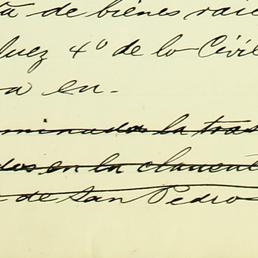 ta de bienes raíc
Juez 4º de lo Civil
a en.-
minada la tras
dos en la
de San Pedro